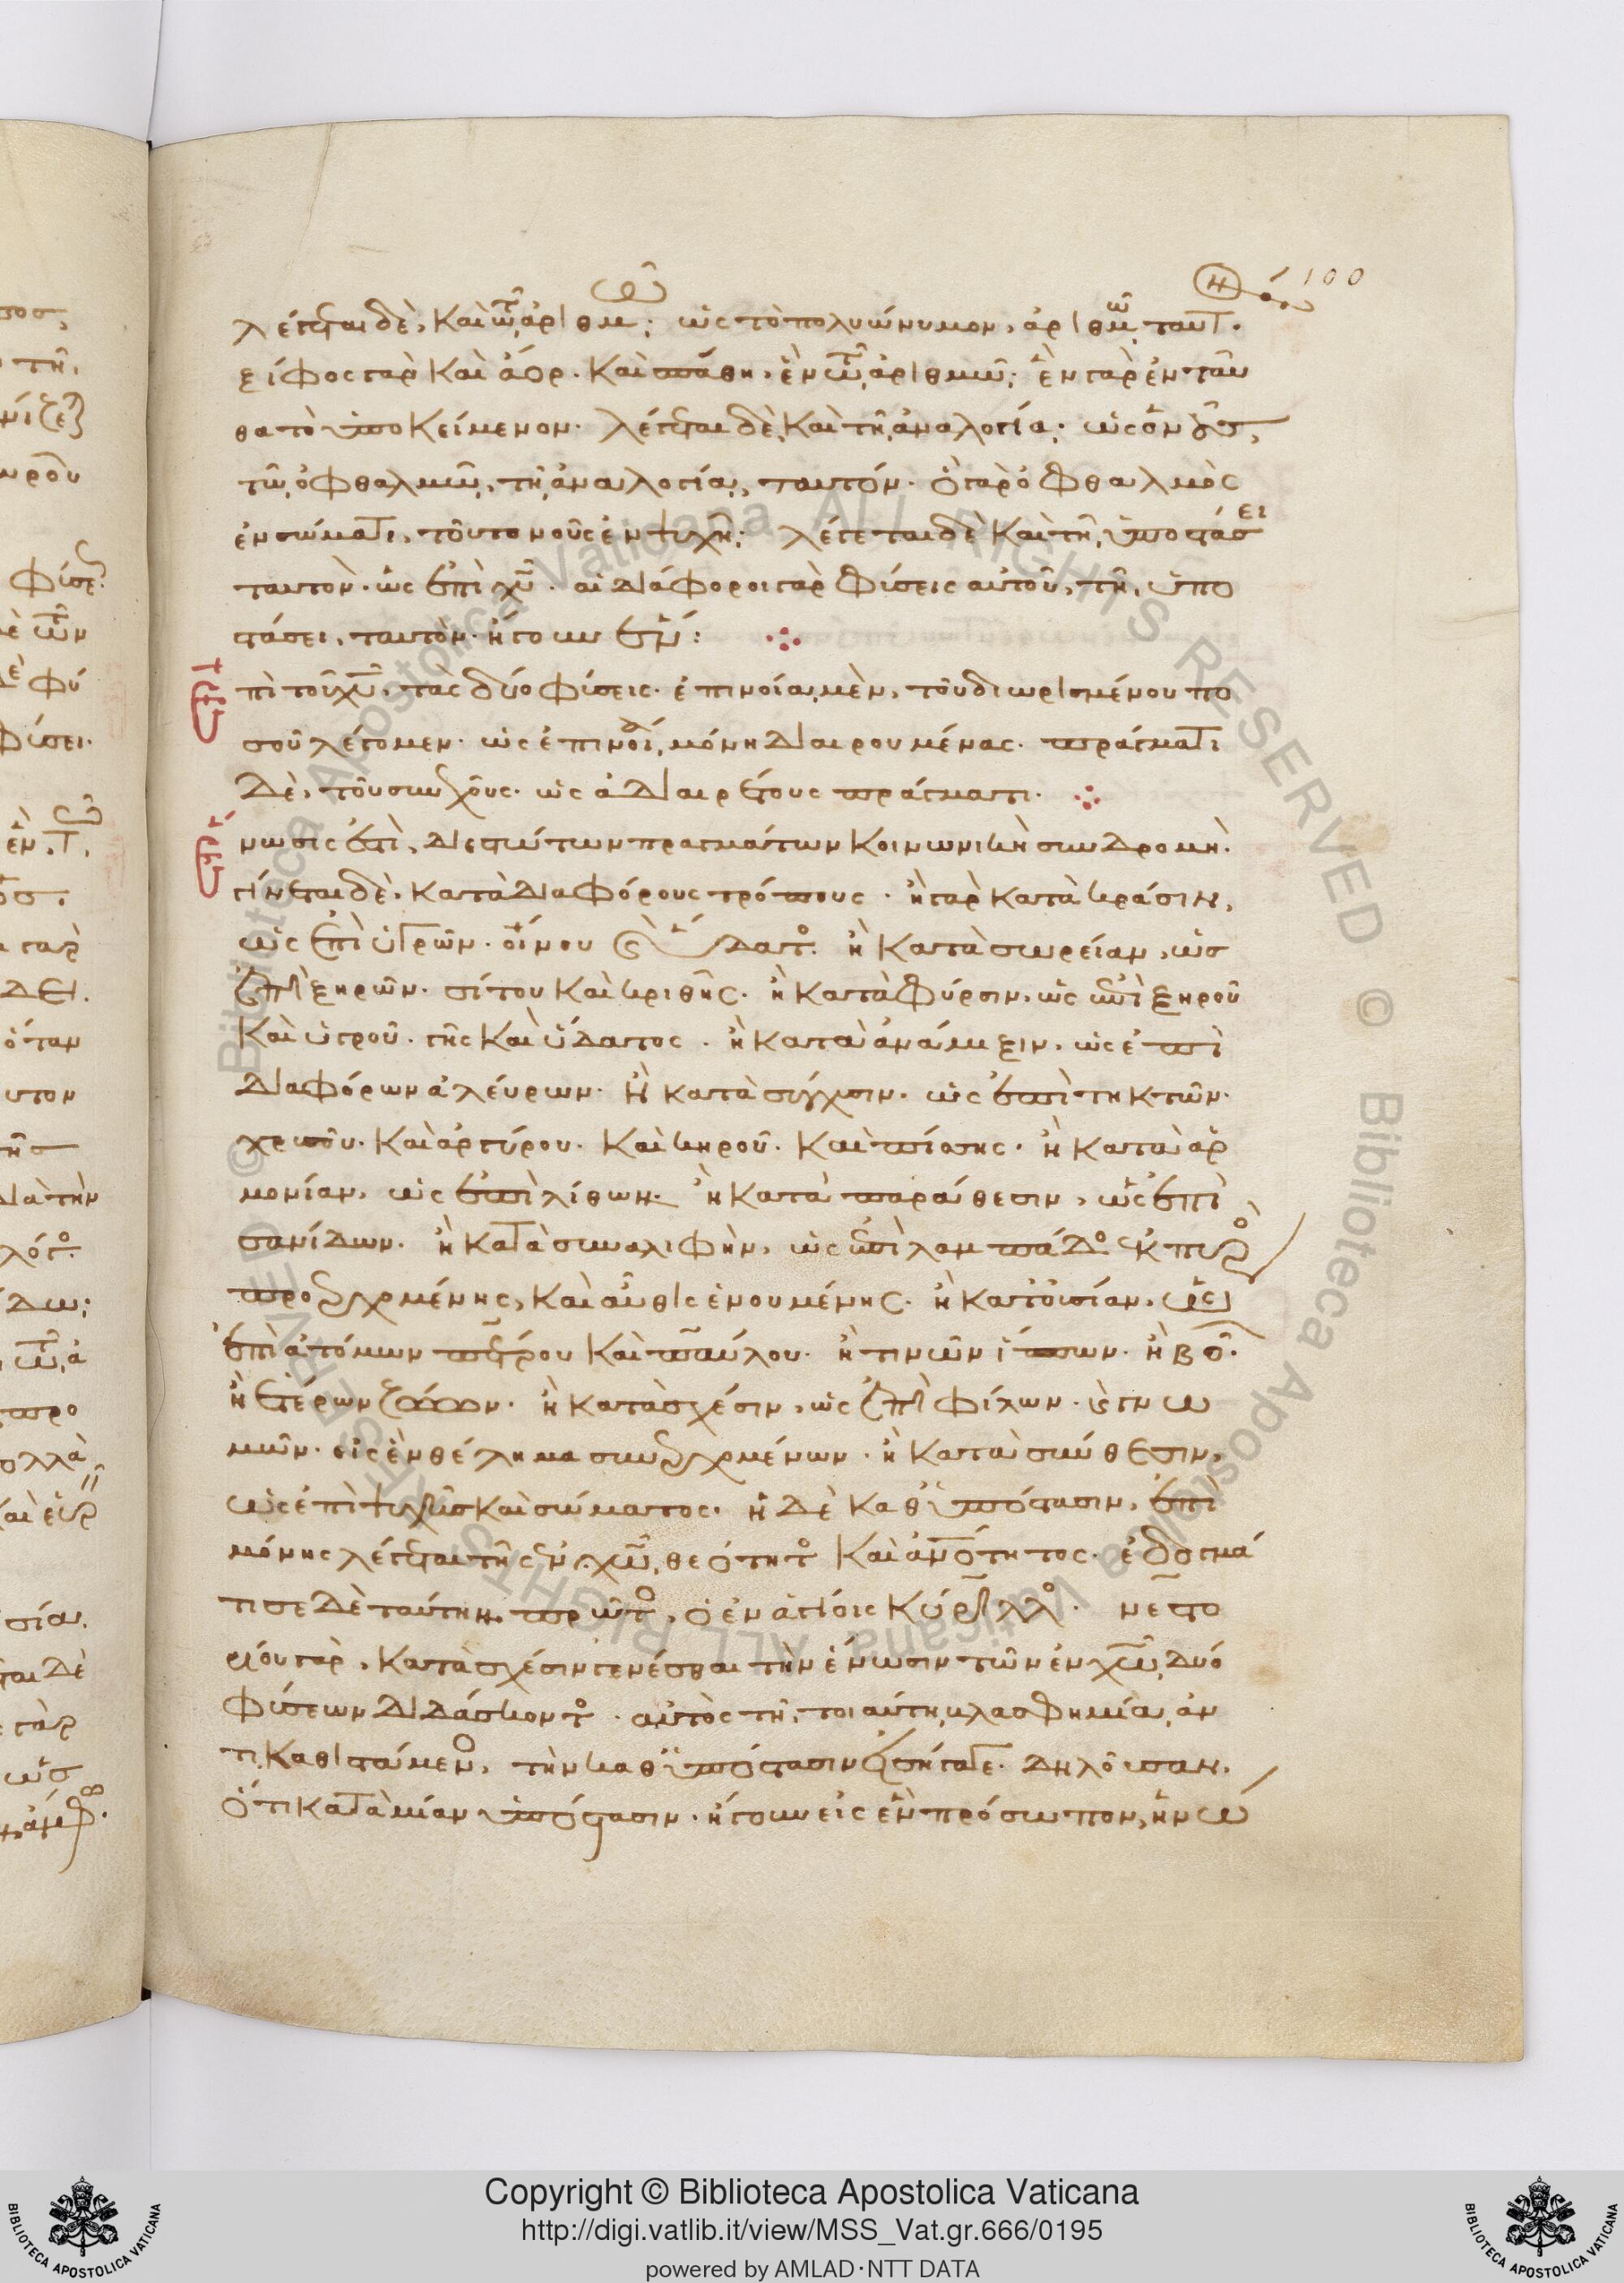 100
λέγεται δὲ, καὶ τῶ ἀριθμῶ· ὡς τὸ πολυώνυμον, ἀριθμῶ ταυτ.
ξίφος γαρ καὶ ἄορ. καὶ σπάθη, ἓν τῶ ἀριθμῶ· ἓν γαρ ἐν ταῦ
θα τὸ ὑποκείμενον. λέγεται δὲ καὶ τῆ ἀναλογία· ὡς ὁ νοῦς,
τῶ ὀφθαλμῶ, τῆ ἀναλογία, ταυτόν. ὃ γαρ ὀφθαλμὸς
ἐν σώματι, τοῦτο νοῦς ἐν ψυχῆ· λέγεται δὲ καὶ τῆ ὑποστάσει
ταυτὸν. ὡς ἐπὶ χυ. αἱ διάφοροι γαρ φύσεις αὐτοῦ, τῆ ὑπο
στάσει, ταυτὸν. ἤγουν ἕν:
πὶ τοῦ χυ, τὰς δύο φύσεις. ἐπινοία μὲν, τοῦ διωρισμένου πο
σοῦ λέγομεν. ὡς ἐπινοία μόνη διαιρουμένας. πράγματι
δὲ, τοῦ συνεχοῦς. ὡς ἀδιαιρέτους πράγματι.
νωσις ἐστὶ, διεστώτων πραγμάτων κοινωνικὴ συνδρομὴ.
γίνεται δὲ, κατὰ διαφόρους τρόπους. ἢ γαρ κατὰ κράσιν,
ὡς ἐπὶ ὑγρῶν. οἴνου καὶ ὕδατος. ἢ κατὰ σωρείαν, ὡς
ἐπὶ ξηρῶν. σίτου καὶ κριθῆς. ἢ κατὰ φύρσιν, ὡς ἐπὶ ξηροῦ
καὶ ὑγροῦ. γῆς καὶ ὕδατος. ἢ κατὰ ἀνάμιξιν, ὡς ἐπὶ
διαφόρων ἀλεύρων. ἢ κατὰ σύγχυσιν. ὡς ἐπὶ τηκτῶν.
χρυσοῦ. καὶ ἀργύρου. καὶ κηροῦ. καὶ πίσσης. ἢ κατὰ ἁρ
μονίαν, ὡς ἐπὶ λίθων. ἢ κατὰ παράθεσιν, ὡς ἐπὶ
σανίδων. ἢ κατὰ συναλιφὴν, ὡς ἐπὶ λαμπάδος ἐκ πυρὸς
προερχομένης, καὶ αὖθις ἑνουμένης. ἢ κατ οὐσίαν, ὡς
ἐπὶ ἀτόμων πέτρου καὶ παύλου. ἢ τινῶν ἵππων. ἢ βοῶν.
ἢ ἑτέρων ζώων. ἢ κατὰ σχέσιν, ὡς ἐπὶ φίλων. ἢ γνω
μῶν. εἰς ἓν θέλημα συνερχομένων. ἢ κατὰ σύνθεσιν,
ὡς ἐπὶ ψυχῆς καὶ σώματος. ἡ δὲ καθ ὑπόστασιν, ἐπὶ
μόνης λέγεται τῆς ἐν χω θεότητος καὶ ἀνότητος. ἐδογμά
τισε δὲ ταύτην πρῶτος, ὁ ἐν ἁγίοις κύριλλος. νεστο
ρίου γαρ, κατὰ σχέσιν γενέσθαι τὴν ἕνωσιν τῶν ἐν χω δύο
φύσεων διδάσκοντος. αὐτὸς τῆ τοιαύτη βλασφημία ἀν
τικαθιστάμενος, τὴν καθ ὑπόστασιν ἐξήγαγε. δηλοῦσαν,
ὅτι κατὰ μίαν ὑπόστασιν. ἤγουν εἰς ἓν πρόσωπον, ἡνώ
Copyright © Biblioteca Apostolica Vaticana
http://digi.vatlib.it/view/MSS_Vat.gr.666/0195
powered by AMLAD·NTT DATA